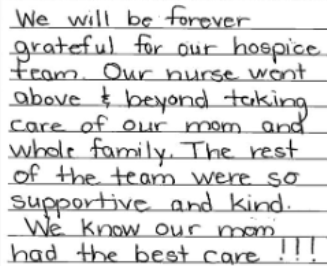 We will be forever
grateful for our hospice
team. Our nurse went
above & beyond taking
care of our mom and
whole family. The rest
of the team were so
supportive and kind.
We know our mom
had the best care !!!